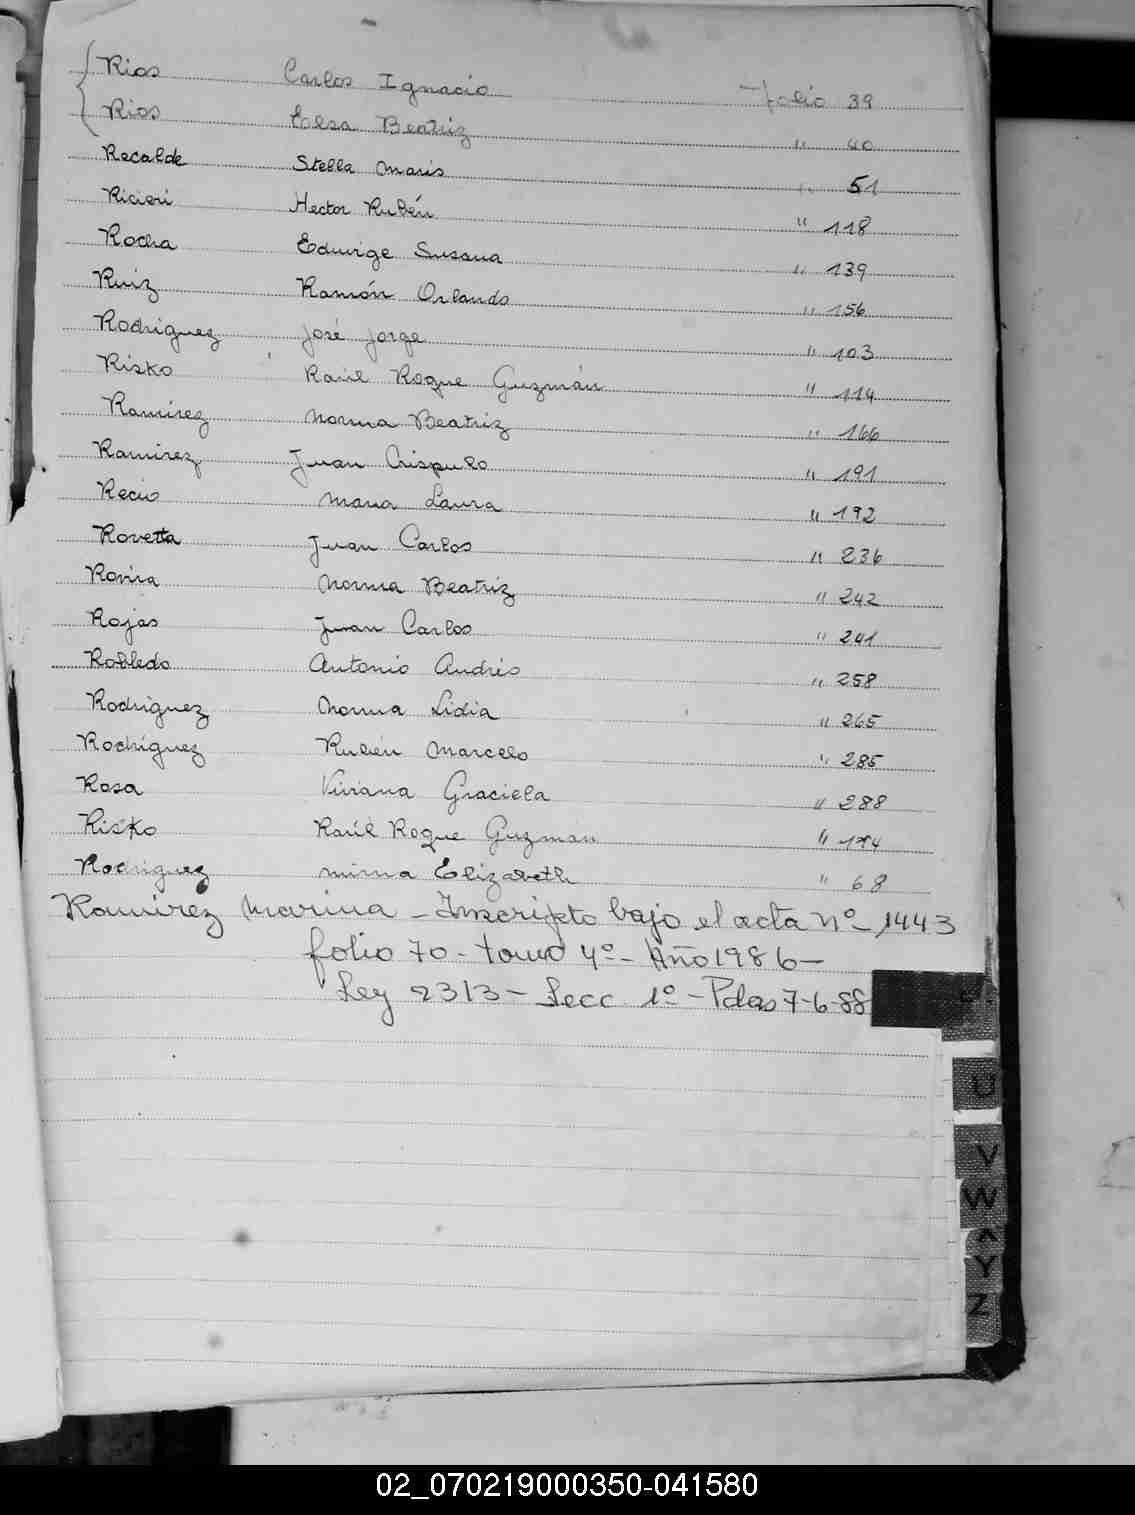 Rios Carlos Ignacio Folio 39
Rios Elsa Beatriz " 40
Recalde Stella Maris " 51
Ricieri Hector Rubén " 118
Rocha Eduvige Susana " 139
Ruiz Ramón Orlando " 156
Rodriguez José Jorge " 103
Risko Raúl Roque Guzmán " 114
Ramirez Norma Beatriz " 166
Ramirez Juan Crispulo " 191
Recio Maria Laura " 192
Rovetta Juan Carlos " 236
Rovira Norma Beatriz " 242
Rojas Juan Carlos " 241
Robledo Antonio Andrés " 258
Rodriguez Norma Lidia " 265
Rodriguez Rubén Marcelo " 285
Rosa Viviana Graciela " 288
Risko Raúl Roque Guzmán " 174
Rodriguez Mirna Elizabeth " 68
Ramirez Marina - Inscripto bajo el acta Nº 1443
folio 70 - tomo 4º - Año 1986 -
Ley 2313 - Secc 1º - Pdas 7-6-88
U
V
W
X
Y
Z
02_070219000350-041580